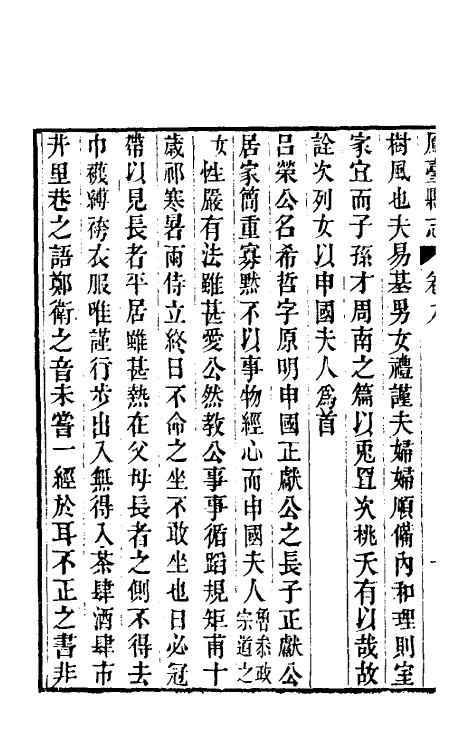 鳳臺縣志 卷九
樹風也夫易基男女禮謹夫婦婦順備內和理則室
家宜而子孫才周南之篇以兎罝次桃夭有以哉故
詮次列女以申國夫人爲首
呂榮公名希哲字原明申國正獻公之長子正獻公
居家簡重寡默不以事物經心而申國夫人魯叅政宗道之
女性嚴有法雖甚愛公然教公事事循蹈規矩甫十
歲祁寒暑雨侍立終日不命之坐不敢坐也日必冠
帶以見長者平居雖甚熱在父母長者之側不得去
巾襪縛袴衣服唯謹行步出入無得入茶肆酒肆市
井里巷之語鄭衛之音未嘗一經於耳不正之書非